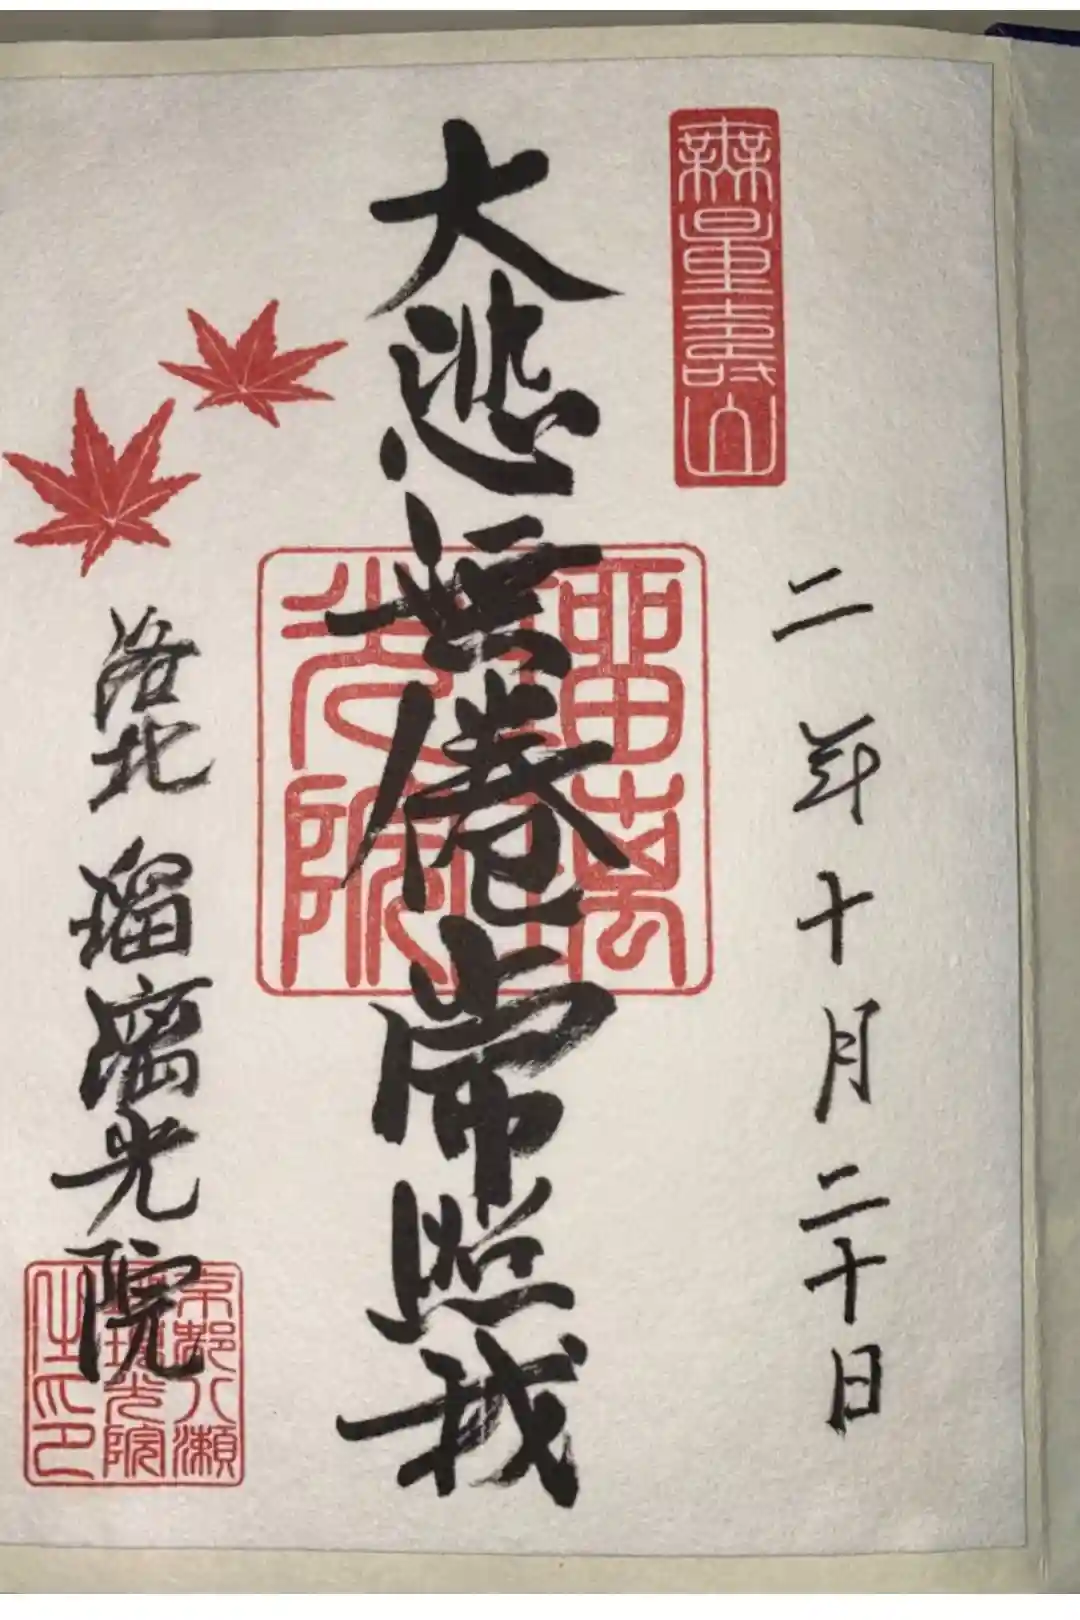 無量壽山
二年十月二十日
大悲無倦常照我
洛北 瑠璃光院
光院
京都八瀬
瑠璃光院
之印